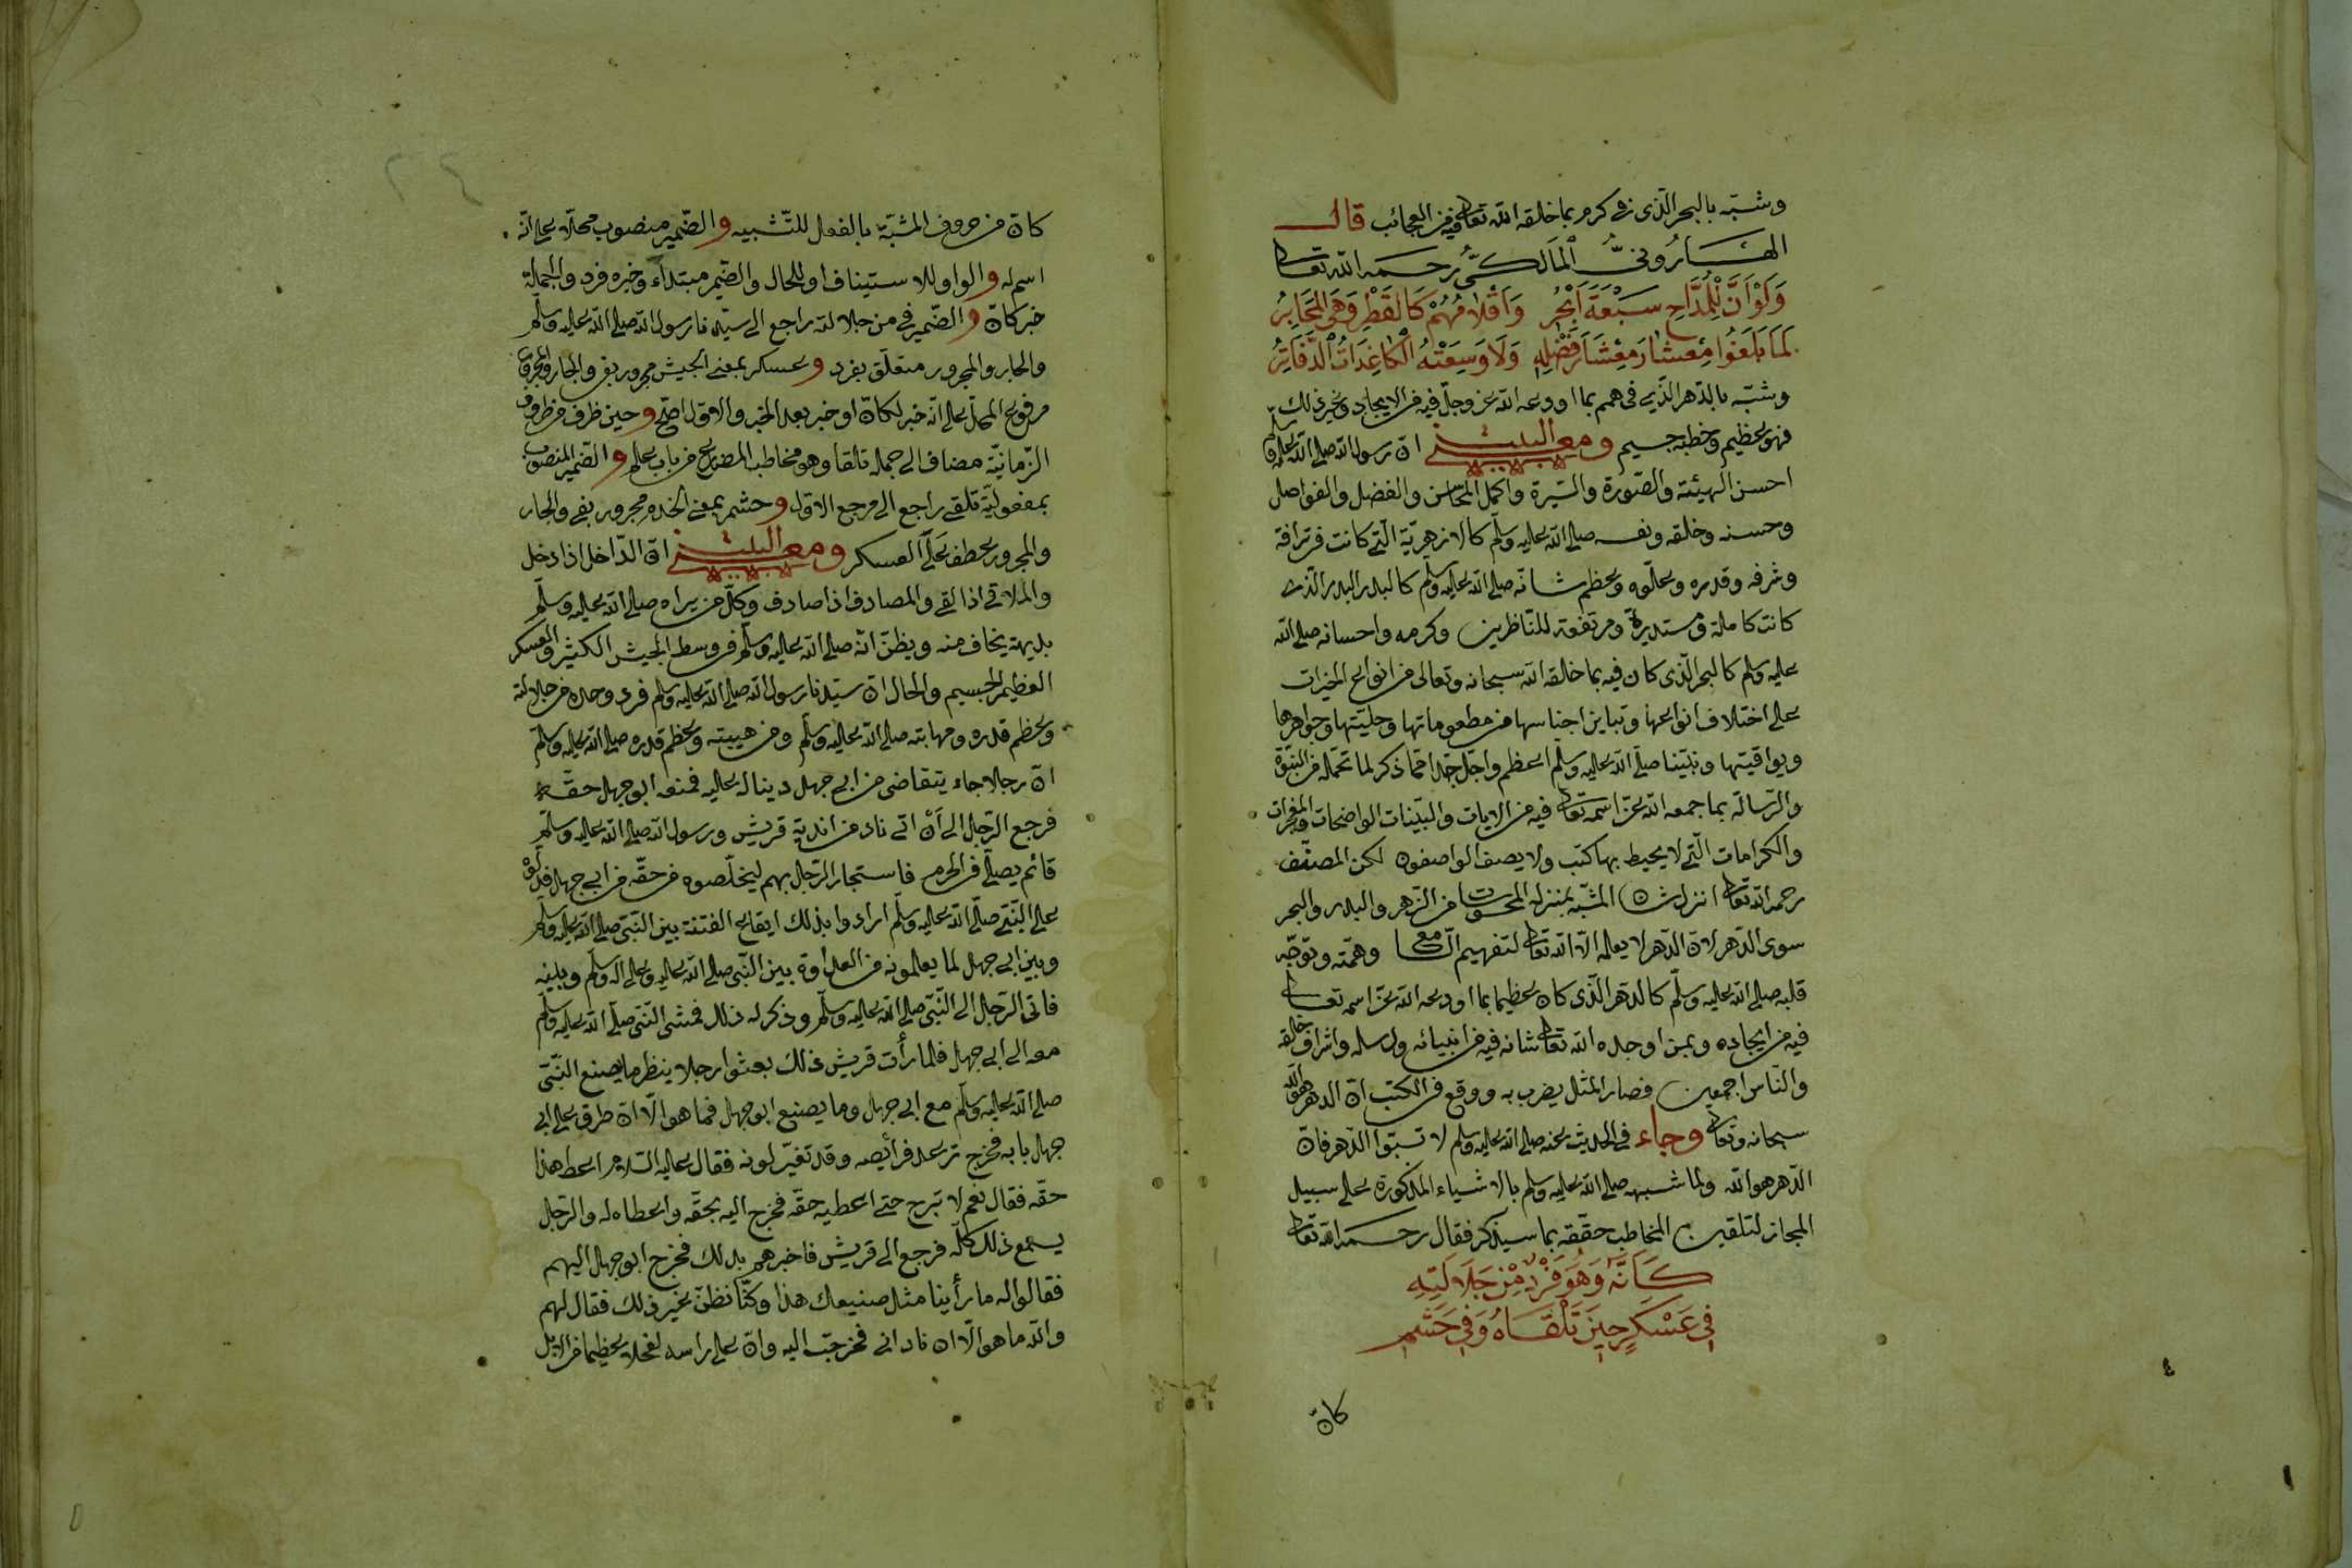 وشبّه بالبحر الّذى فى كرم بما خلقه الله تعالى فيه من العجائب قال
الهاروني المالكيّ رحمه الله تعالى
وَلَوْ اَنَّ لِلْمُدَّاحِ سَبْعَةَ اَبْحُرٍ وَاَقْلَامُهُمْ كَالقَطْرِ وَهَى المَحَابِرُ
لَمَا بَلَغُوا مِعْشَارَ مِعْشَارَ فَضْلِهِ وَلَا وَسِعَتْهُ الْكَاغِدَاتُ الدَّفَاتِرُ
وشبّه بالدّهر الّذى فى همم بما اودعه الله عز وجلّ فيه من الايجاد وغير ذلك
فهو عظيم وخطبه جسيم ومعنى البيت انّ رسول الله صلى الله عليه وسلم
احسن الهيئة والصّورة والسّيرة واكمل المحاسن والفضل والفواضل
وحسنه وخلقه ونفسه صلى الله عليه وسلّم كالازهريّة الّتى كانت فى ترافة
وشرفه وقدره وعلّوه وعظم شانه صلى الله عليه وسلّم كالبدر البدر الّذى
كانت كاملة ومستديرة ومرتفعة للنّاظرين وكرمه واحسانه صلى الله
عليه وسلم كالبحر الّذى كان فيه بما خلقه الله سبحانه وتعالى من انواع الخيرات
على اختلاف انواعها وتباين اجناسها من مطعوماتها وحليّتها وجواهرها
ويواقيتها ونبيّنا صلّى الله عليه وسلّم اعظم واجلّ جدا ممّا ذكر لما تحمّله من النّبوّة
والرّسالة بما جمعه الله عزّ اسمه تعالى فيه من الايات والبيّنات الواضحات والمعجزات
والكرامات الّتى لا يحيط بها كتب ولا يصف الواصفون لكن المصنّف
رحمه الله تعالى انزل شان المشبّه بمنزلة المحسوسات من الزّهر والبدر والبحر
سوى الدّهر لانّ الدّهر لا يعلمه الّا الله تعالى لتفهيم السّامع وهمّته وتوجّه
قلبه صلى الله عليه وسلّم كالدّهر الّذى كان عظيما بما اودعه الله عزّ اسمه تعالى
فيه من ايجاده وبمن اوجده الله تعالى شانه فيه من انبيائه ورسله واشراف خلقه
والنّاس اجمعين فصار المثل يضرب به ووقع فى الكتب انّ الدهر هو الله
سبحانه وتعالى وجاء فى الحديث عنه صلى الله عليه وسلم لا تسبّوا الدّهر فانّ
الدّهر هو الله ولما شبهه صلى الله عليه وسلم بالاشياء المذكورة على سبيل
المجاز لتلقين المخاطب حقّقه بما سيذكر فقال رحمه الله تعالى
كَاَنَّهُ وَهُوَ فَرْدٌ مِنْ جَلَالَتِهِ
فِى عَسْكَرٍ حِينَ تَلْقَاهُ وَفِى حَشَمِ
كانّ
كانّ من حروف المشبّهة بالفعل للتّشبيه والضّمير منصوب محلّا على انّه
اسمه والواو للاستيناف او للحال والضّمير مبتداء وخبره فرد والجملة
خبر كانّ والضّمير فى من جلالته راجع الى سيّدنا رسول الله صلى الله عليه وسلّم
والجار والمجرور متعلّق بفرد وعسكر بمعنى الجيش مجرور بفى والجار والمجرور
مرفوع المحلّ على انّه خبر لكانّ او خبر بعد الخبر والاوّل اصحّ وحين ظرف من ظروف
الزّمانيّة مضاف الى جملة تلقا وهو مخاطب المضارع من باب علم والضّمير المنصوب
بمفعوليّة تلقى راجع الى مرجع الاوّل وحشم بمعنى الخدم مجرور بفى والجار
والمجرور عطف على العسكر ومعنى البيت انّ الدّاخل اذا دخل
والملاقى اذا لقى والمصادف اذا صادف وكلّ من يراه صلى الله عليه وسلّم
بديهة يخاف منه ويظنّ انّه صلى الله عليه وسلّم فى وسط الجيش الكثير والعسكر
العظيم الجسيم والحال انّ سيّدنا رسول الله صلى الله عليه وسلم فرد وحده من جلالته
وعظم قدره ومهابته صلى الله عليه وسلّم ومن هيبته وعظم قدره صلى الله عليه وسلّم
انّ رجلا جاء يتقاضى من ابى جهل دينا له عليه فمنعه ابو جهل حقّه
فرجع الرّجل الى اَنْ اتى ناد من اندية قريش ورسول الله صلى الله عليه وسلّم
قائم يصلّى فى الحرم فاستجار الرّجل بهم ليخلّصوه من حقّه من ابى جهل فدلّوه
على النّبىّ صلّى الله عليه وسلّم ارادوا بذلك ايقاع الفتنة بين النّبىّ صلى الله عليه وسلّم
وبين ابى جهل لما يعلمونه من العداوة بين النّبى صلى الله عليه وعلى اله وسلّم وبينه
فاتى الرّجل الى النّبىّ صلى الله عليه وسلّم وذكر له ذلك فمشى النّبى صلّى الله عليه وسلّم
معه الى ابى جهل فلما رأت قريش ذلك بعثوا رجلا ينظر ما يصنع النّبىّ
صلى الله عليه وسلّم مع ابى جهل وما يصنع ابو جهل فما هو الّا ان طرق على ابى
جهل بابه فخرج ترعد فرائصه وقد تغيّر لونه فقال عليه السّلام اعط هذا
حقّه فقال نعم لا تبرح حتى اعطيه حقّه فخرج اليه بحقّه واعطاه له والرّجل
يسمع ذلك كلّه فرجع الى قريش فاخبرهم بذلك فخرج ابو جهل اليهم
فقالوا له ما رأينا مثل صنيعك هذا وكنّا نظنّ غير ذلك فقال لهم
والله ما هو الّا ان نادانى فخرجت اليه وانّ على راسه لفحلا عظيما من الابل